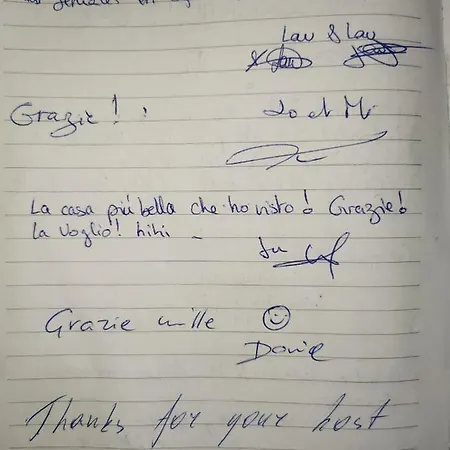 Lau & Lau
Grazie!
La casa più bella che ho visto! Grazie!
la voglio! hihi
Grazie mille
Thanks for your host